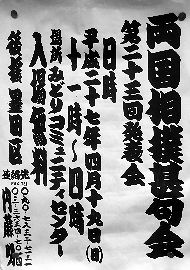 両国相撲甚句会
第二十三回発表会
日時
平成二十七年四月十九日(日)
十一時～四時
場所みどりコミュニティセンター
入場無料
後援 墨田区
連絡先